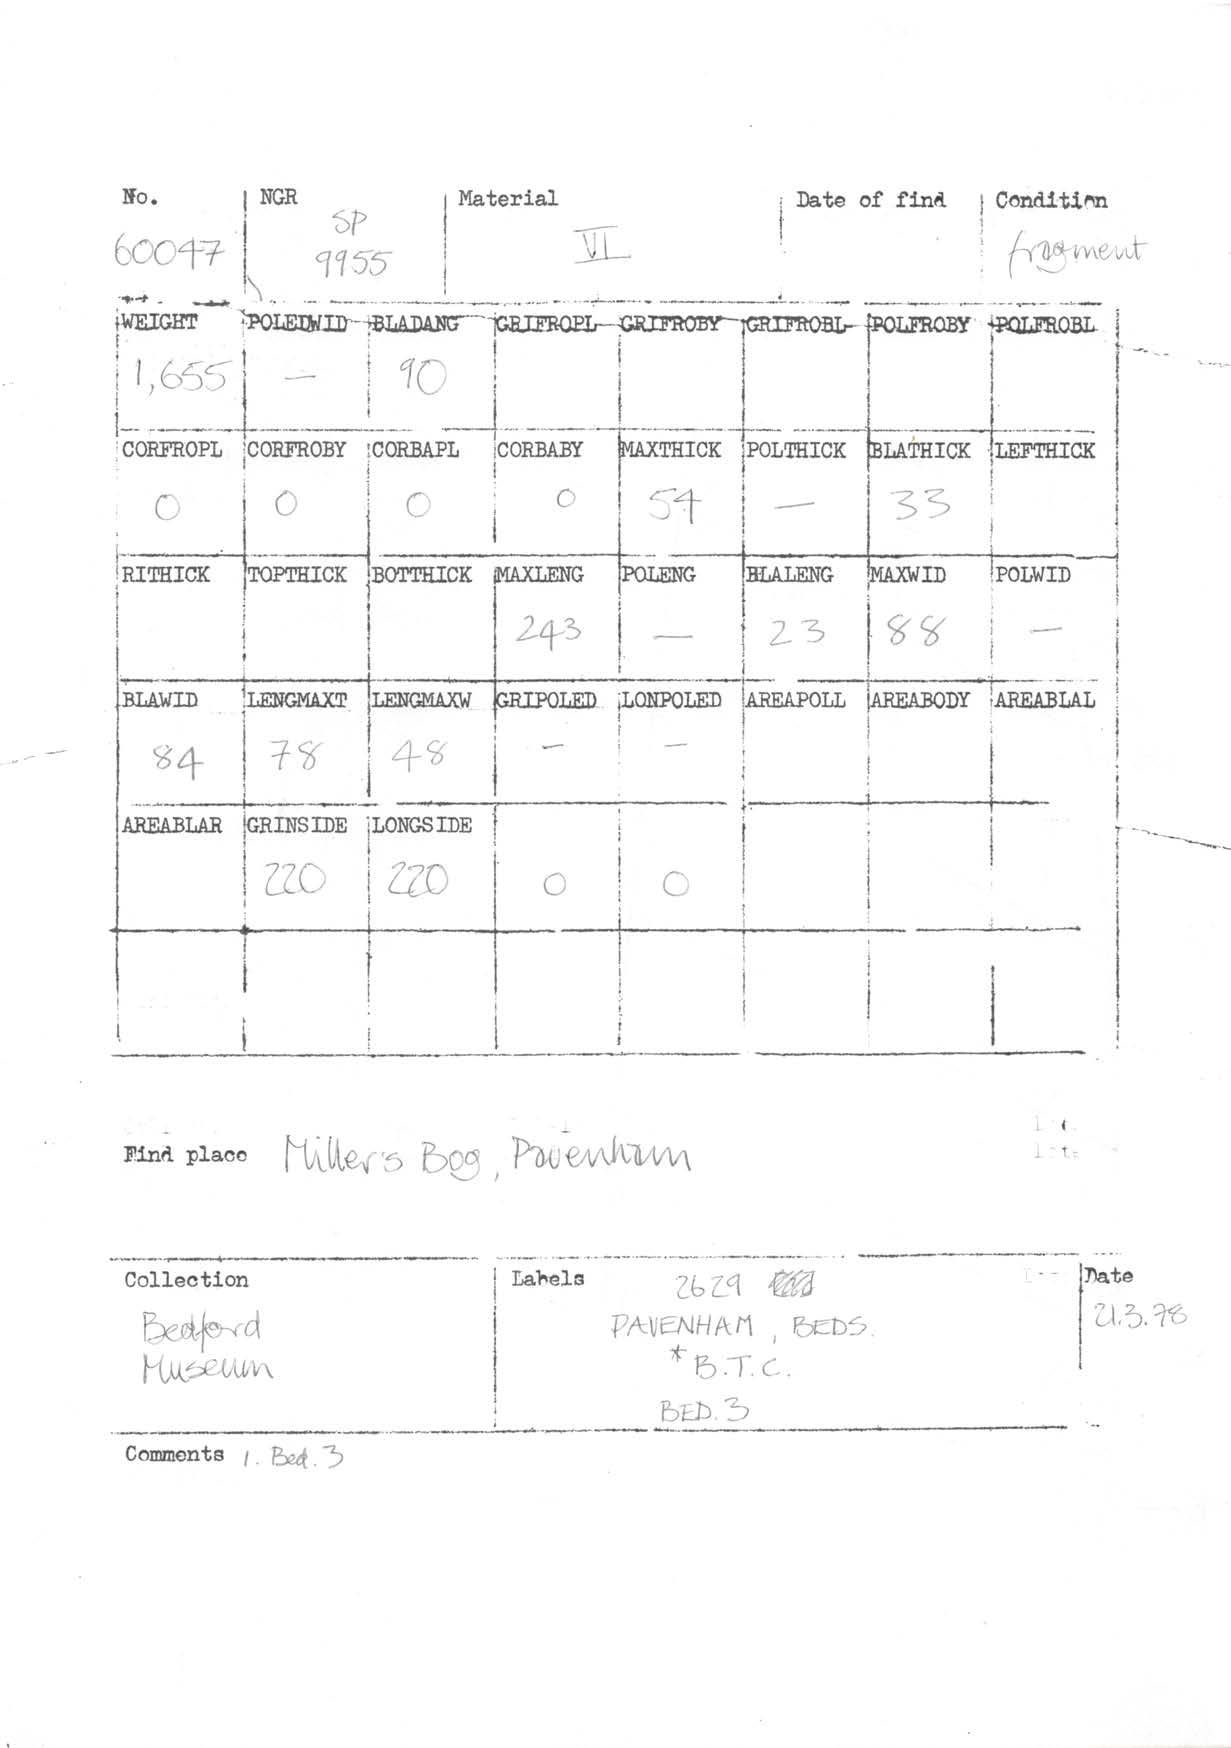 No. NGR Material Date of find Condition
60047 SP 9955 VI fragment
WEIGHT POLEDWID BLADANG GRIFROPL GRIFROBY GRIFROBL POLFROBY POLFROBL
1,655 — 90
CORFROPL CORFROBY CORBAPL CORBABY MAXTHICK POLTHICK BLATHICK LEFTHICK
0 0 0 0 54 — 33
RITHICK TOPTHICK BOTTHICK MAXLENG POLENG BLALENG MAXWID POLWID
243 — 23 88 —
BLAWID LENGMAXT LENGMAXW GRIPOLED LONPOLED AREAPOLL AREABODY AREABLAL
84 78 48 — —
AREABLAR GRINSIDE LONGSIDE
220 220 0 0
Find place Miller's Bog, Pavenham
Collection Labels 2629 Date
Bedford PAVENHAM, BEDS. 21.3.78
Museum *B.T.C.
BED.3
Comments 1. Bed.3